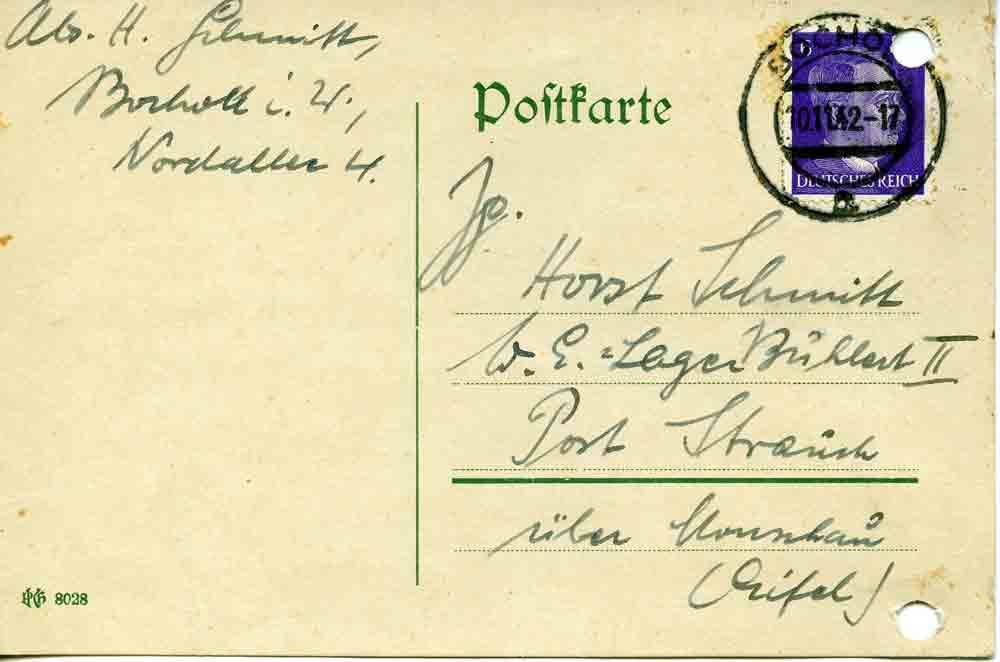 Abs. H. Schmitt,
Bocholt i. W.,
Nordallee 4.
Postkarte
6
BOCHO
10.11.42-17
DEUTSCHES REICH
a
Jg.
Horst Schmitt
W. E.=Lager Bühlert II
Post Strauch
über Monschau
(Eifel)
8028